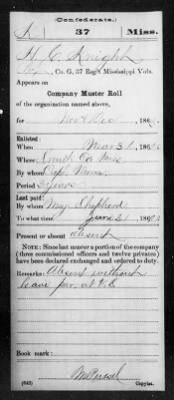 (Confederate.)
K 37 Miss.
H. C. Knight
Co. G, 37 Reg't Mississippi Vols.
Appears on
Company Muster Roll
of the organization named above,
for Nov & Dec, 186
Enlisted:
When Mar 31, 186
Where Smith Co Miss
By whom Capt.
Period 3 years
Last paid:
By whom Maj. Shepherd
To what time June 31, 186
Present or absent Absent
NOTE: Since last muster a portion of the company
(three commissioned officers and twelve privates) have
been declared exchanged and ordered to duty.
Remarks: Absent without
leave
Book mark:
(642) Copyist.